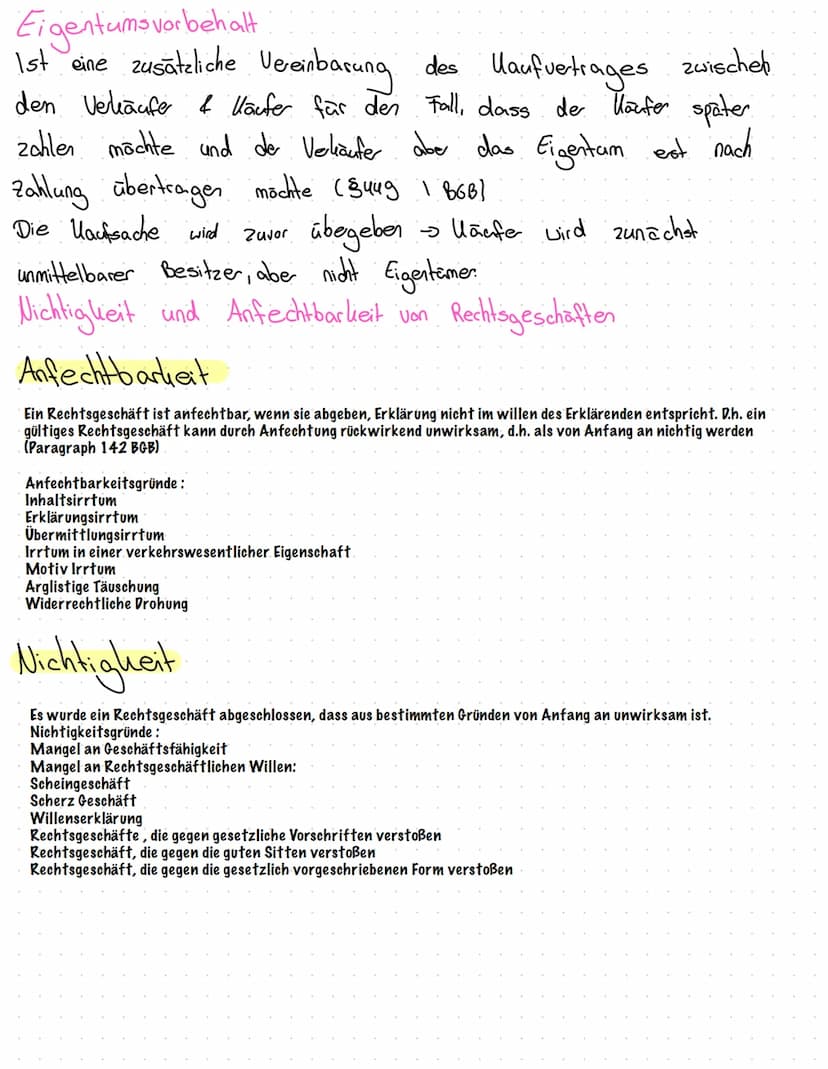 Eigentumsvorbehalt
Ist eine zusätzliche Vereinbarung des Kaufvertrages zwischen
den Verkäufer & Käufer für den Fall, dass der Käufer später
zahlen möchte und der Verkäufer aber das Eigentum erst nach
Zahlung übertragen möchte (§449 1 BGB)
Die Kaufsache wird zuvor übergeben → Käufer wird zunächst
unmittelbarer Besitzer, aber nicht Eigentümer.
Nichtigkeit und Anfechtbarkeit von Rechtsgeschäften
Anfechtbarkeit
Ein Rechtsgeschäft ist anfechtbar, wenn sie abgeben, Erklärung nicht im willen des Erklärenden entspricht. D.h. ein
gültiges Rechtsgeschäft kann durch Anfechtung rückwirkend unwirksam, d.h. als von Anfang an nichtig werden
(Paragraph 142 BGB)
Anfechtbarkeitsgründe :
Inhaltsirrtum
Erklärungsirrtum
Übermittlungsirrtum
Irrtum in einer verkehrswesentlicher Eigenschaft
Motiv Irrtum
Arglistige Täuschung
Widerrechtliche Drohung
Nichtigkeit
Es wurde ein Rechtsgeschäft abgeschlossen, dass aus bestimmten Gründen von Anfang an unwirksam ist.
Nichtigkeitsgründe :
Mangel an Geschäftsfähigkeit
Mangel an Rechtsgeschäftlichen Willen:
Scheingeschäft
Scherz Geschäft
Willenserklärung
Rechtsgeschäfte , die gegen gesetzliche Vorschriften verstoßen
Rechtsgeschäft, die gegen die guten Sitten verstoßen
Rechtsgeschäft, die gegen die gesetzlich vorgeschriebenen Form verstoßen